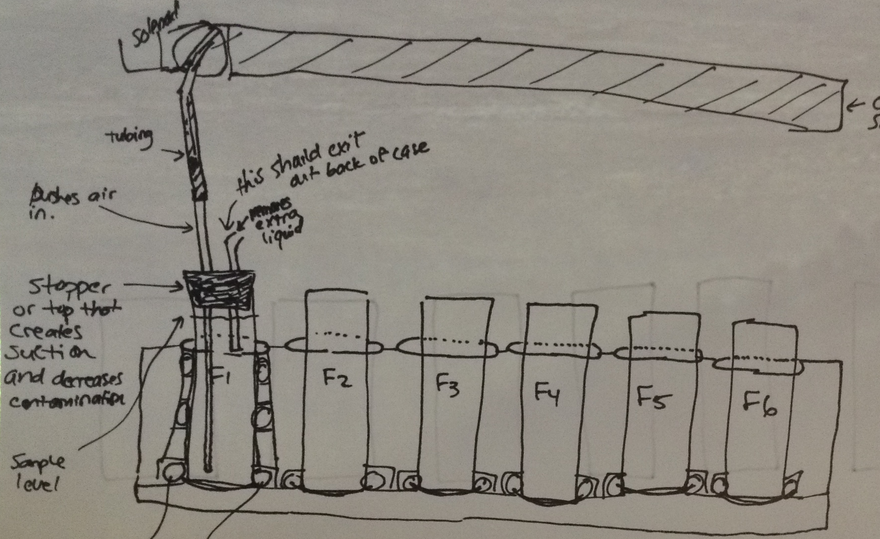 Solenoid
tubing
this should exit
out back of case
Pushes air
in.
removes
extra
liquid
Stopper
or top that
creates
suction
and decreases
contamination
Sample
level
F1
F2
F3
F4
F5
F6